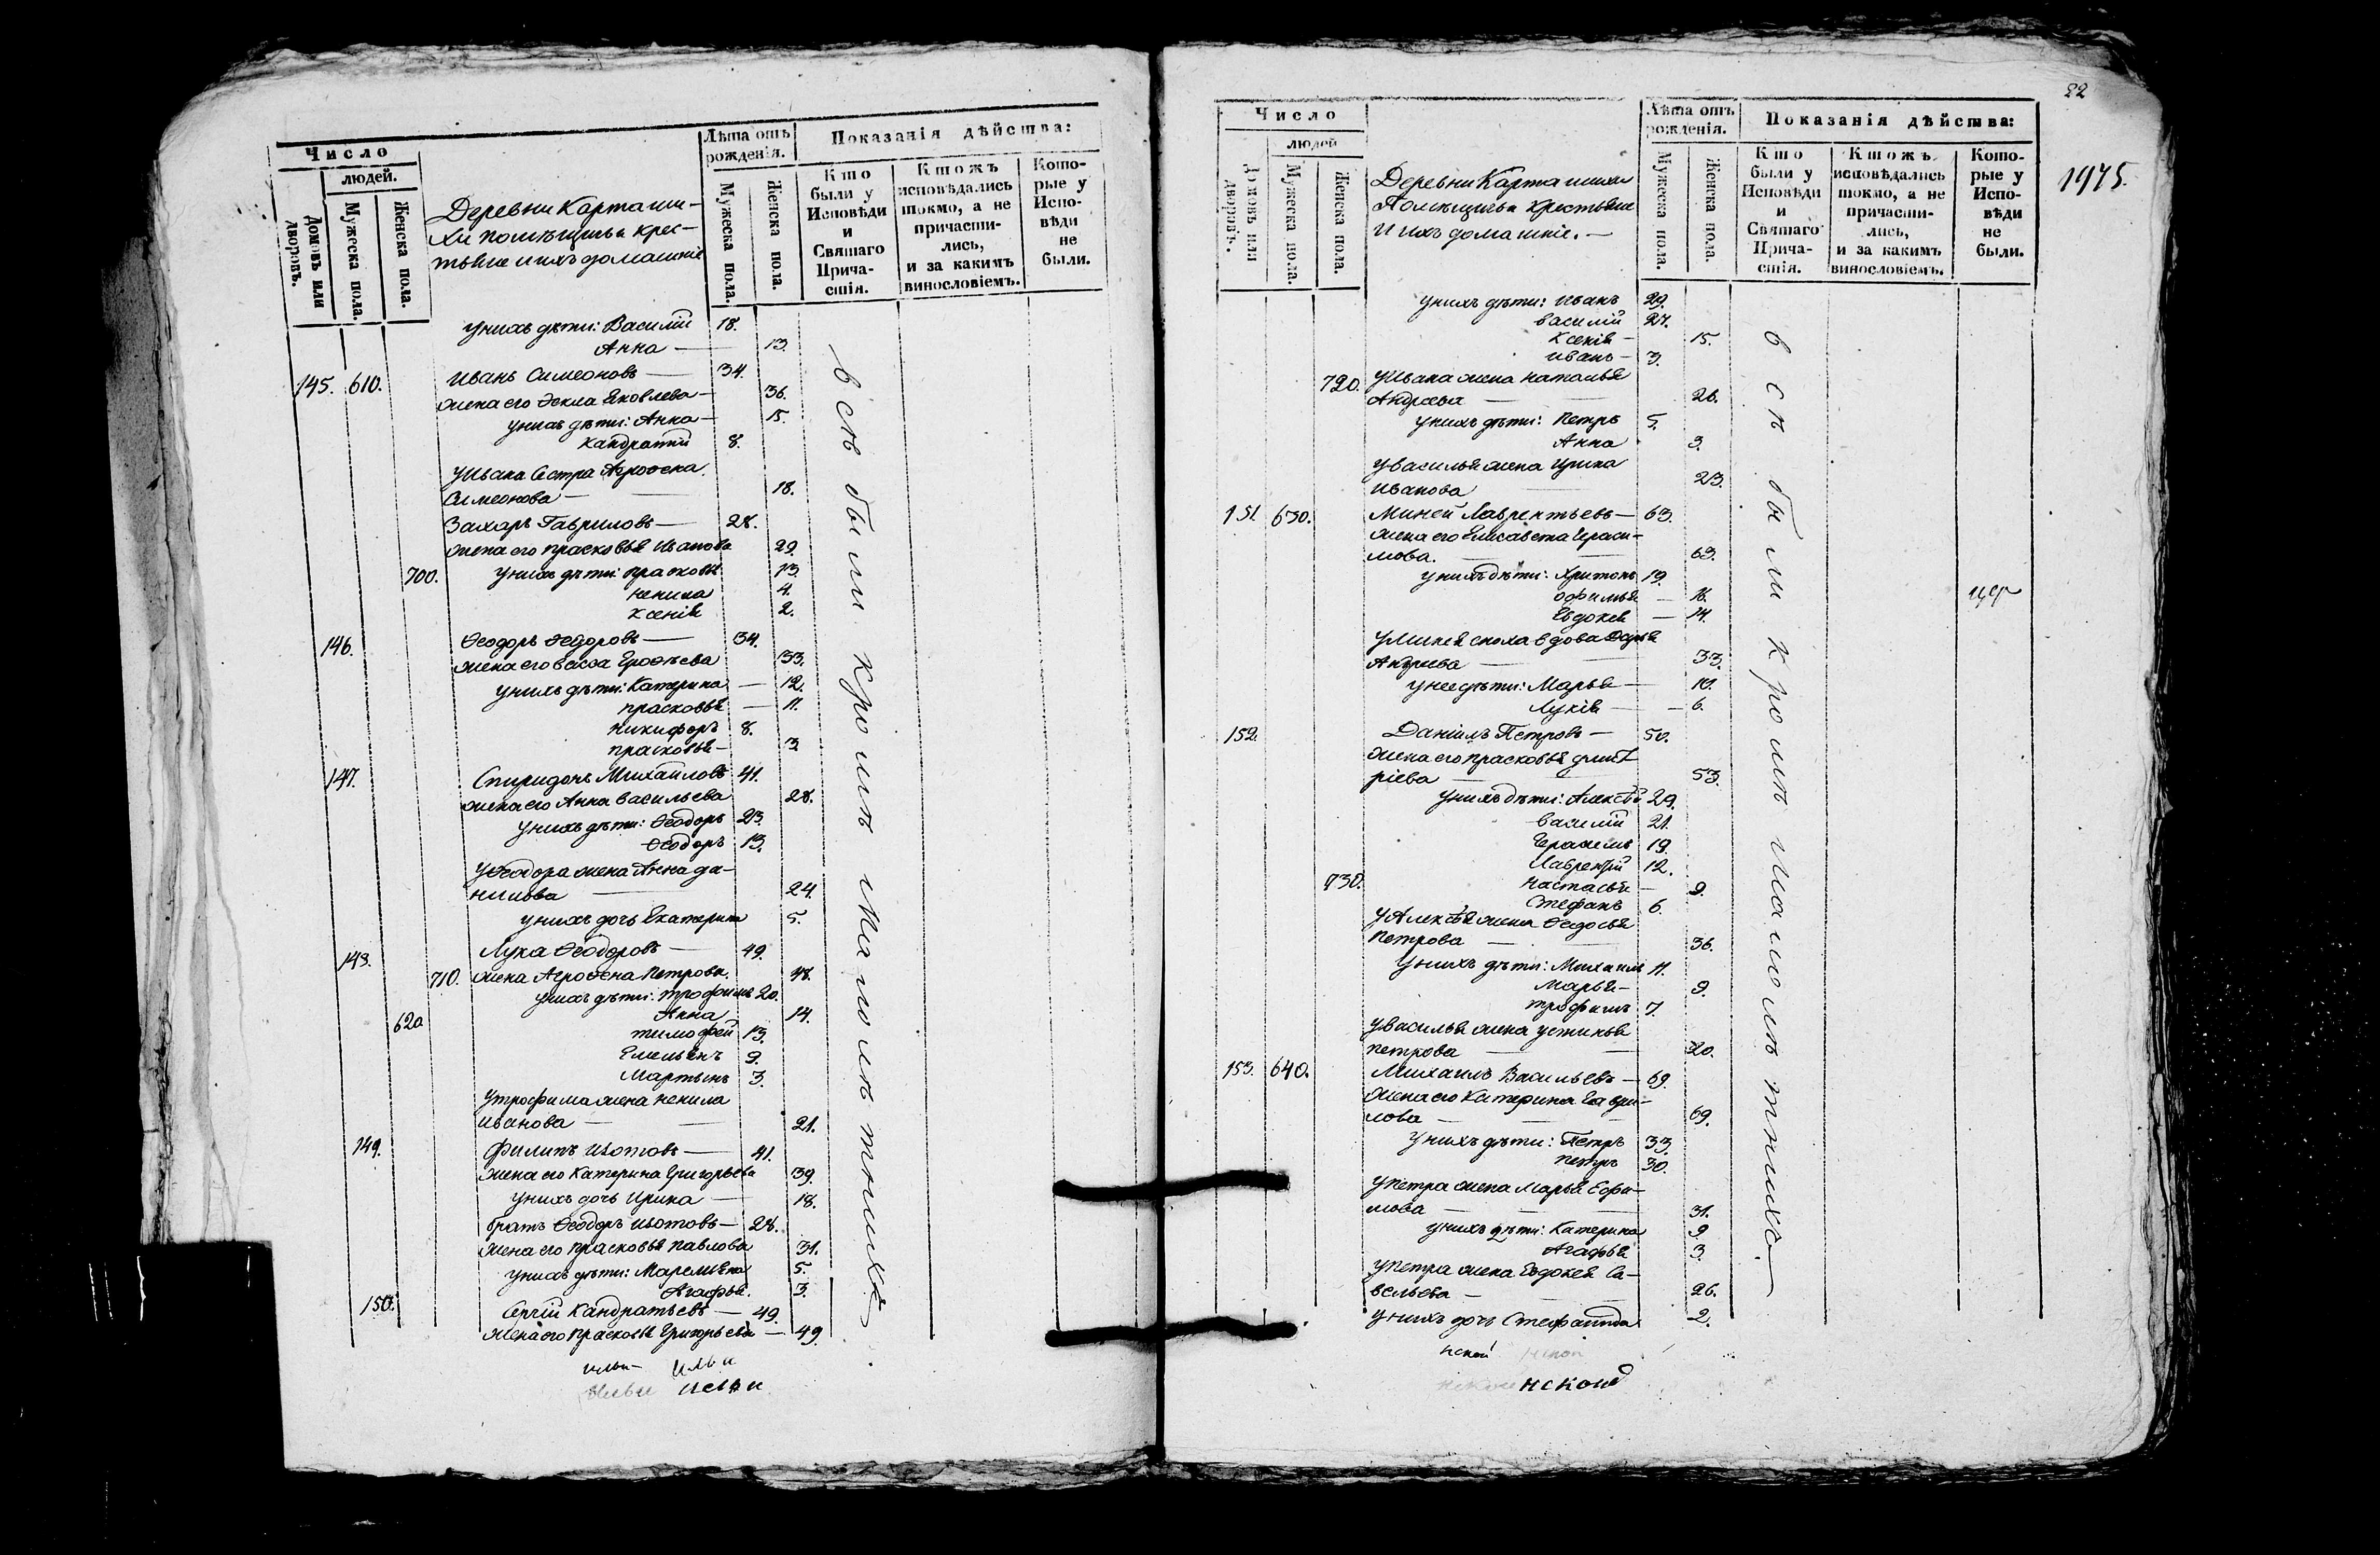 Число
людей.
Домовъ или дворовъ.
Мужеска пола.
Женска пола.
Деревни Карташи-
хи помѣщичьи крес-
тьяне и ихъ домашніе
Лѣта отъ рожденія.
Мужеска пола.
Женска пола.
Показанія дѣйства:
Кто были у Исповѣди и Святаго Прича-стія.
Ктожъ исповѣдались токмо, а не причасти-лись, и за какимъ винословіемъ.
Кото-рые у Испо-вѣди не были.
у нихъ дѣти: Василій 18.
Анна — 13.
145. 610. Иванъ Симеоновъ — 34.
жена его Ѳекла Яковлева — 36.
у нихъ дѣти: Анна — 15.
Кандратій 8.
у Ивана сестра Агроѳена
Симеонова — 18.
Захаръ Гавриловъ — 28.
жена его Прасковья Иванова 29.
700. у нихъ дѣти: Прасковья 13.
Ненила 4.
Ксенія 2.
146. Ѳеодоръ Ѳедоровъ — 34.
жена его Васса Ероѳѣева 33.
у нихъ дѣти: Катерина — 12.
Прасковья — 11.
Никифоръ 8.
Прасковья — 3.
147. Спиридонъ Михайловъ 41.
жена его Анна Васильева 28.
у нихъ дѣти: Ѳеодоръ 23.
Ѳеодоръ 13.
у Ѳеодора жена Анна Да-
нилова — 24.
у нихъ дочь Екатерина 5.
148. Лука Ѳеодоровъ — 49.
710. жена Агроѳена Петрова. 48.
у нихъ дѣти: Трофимъ 20.
620 Анна 14.
Тимофей 13.
Емельянъ 9.
Мартынъ 3.
у Трофима жена Ненила
Иванова — 21.
149. Филипъ Изотовъ — 41.
жена его Катерина Григорьева 39.
у нихъ дочь Ирина — 18.
братъ Ѳеодоръ Изотовъ — 28.
жена его Прасковья Павлова 31.
у нихъ дѣти: Маремьяна 5.
Агафья. 3.
150. Сергій Кандратьевъ — 49.
жена его Прасковья Григорьева — 49.
всѣ были кромѣ малолѣтнихъ
22
1975.
Число
людей
Домовъ или дворовъ.
Мужеска пола.
Женска пола.
Деревни Карташихи
Помѣщичьи крестьяне
и ихъ домашніе. —
Лѣта отъ рожденія.
Мужеска пола.
Женска пола.
Показанія дѣйства:
Кто были у Исповѣди и Святаго Прича-стія.
Ктожъ исповѣдались токмо, а не причасти-лись, и за какимъ винословіемъ.
Кото-рые у Испо-вѣди не были.
у нихъ дѣти: Иванъ 29.
Василій 27.
Ксенія — 15.
Иванъ — 3.
720. у Ивана жена Наталья
Андреева — 26.
у нихъ дѣти: Петръ 5.
Анна 3.
у Василья жена Ирина
Иванова 23.
151. 630. Миней Лаврентьевъ — 63.
жена его Елисавета Гераси-
мова. — 63.
у нихъ дѣти: Харитонъ 19.
Офимья — 16.
Евдокея — 14.
у Минея сноха вдова Дарья
Андреева — 33.
у нее дѣти: Марья — 10.
Лукія — 6.
152. Даніилъ Петровъ — 50.
жена его Прасковья Дмит-
ріева — 53.
у нихъ дѣти: Алексѣй 29.
Василій 21.
Герасимъ 19.
Лаврентій 12.
730. Настасья — 9.
Стефанъ 6.
у Алексѣя жена Ѳедосья
Петрова — 36.
у нихъ дѣти: Михаилъ 11.
Марья — 9.
Трофимъ 7.
у Василья жена Устинья
Петрова — 20.
153. 640. Михаилъ Васильевъ — 69.
жена его Катерина Гаври-
лова — 69.
у нихъ дѣти: Петръ 33.
Петръ 30.
у Петра жена Марья Ефи-
мова — 31.
у нихъ дѣти: Катерина 9
Агафья 3.
у Петра жена Евдокея Са-
вельева — 26.
у нихъ дочь Стефанида 2.
нской
нской
всѣ были кромѣ малолѣтнихъ.